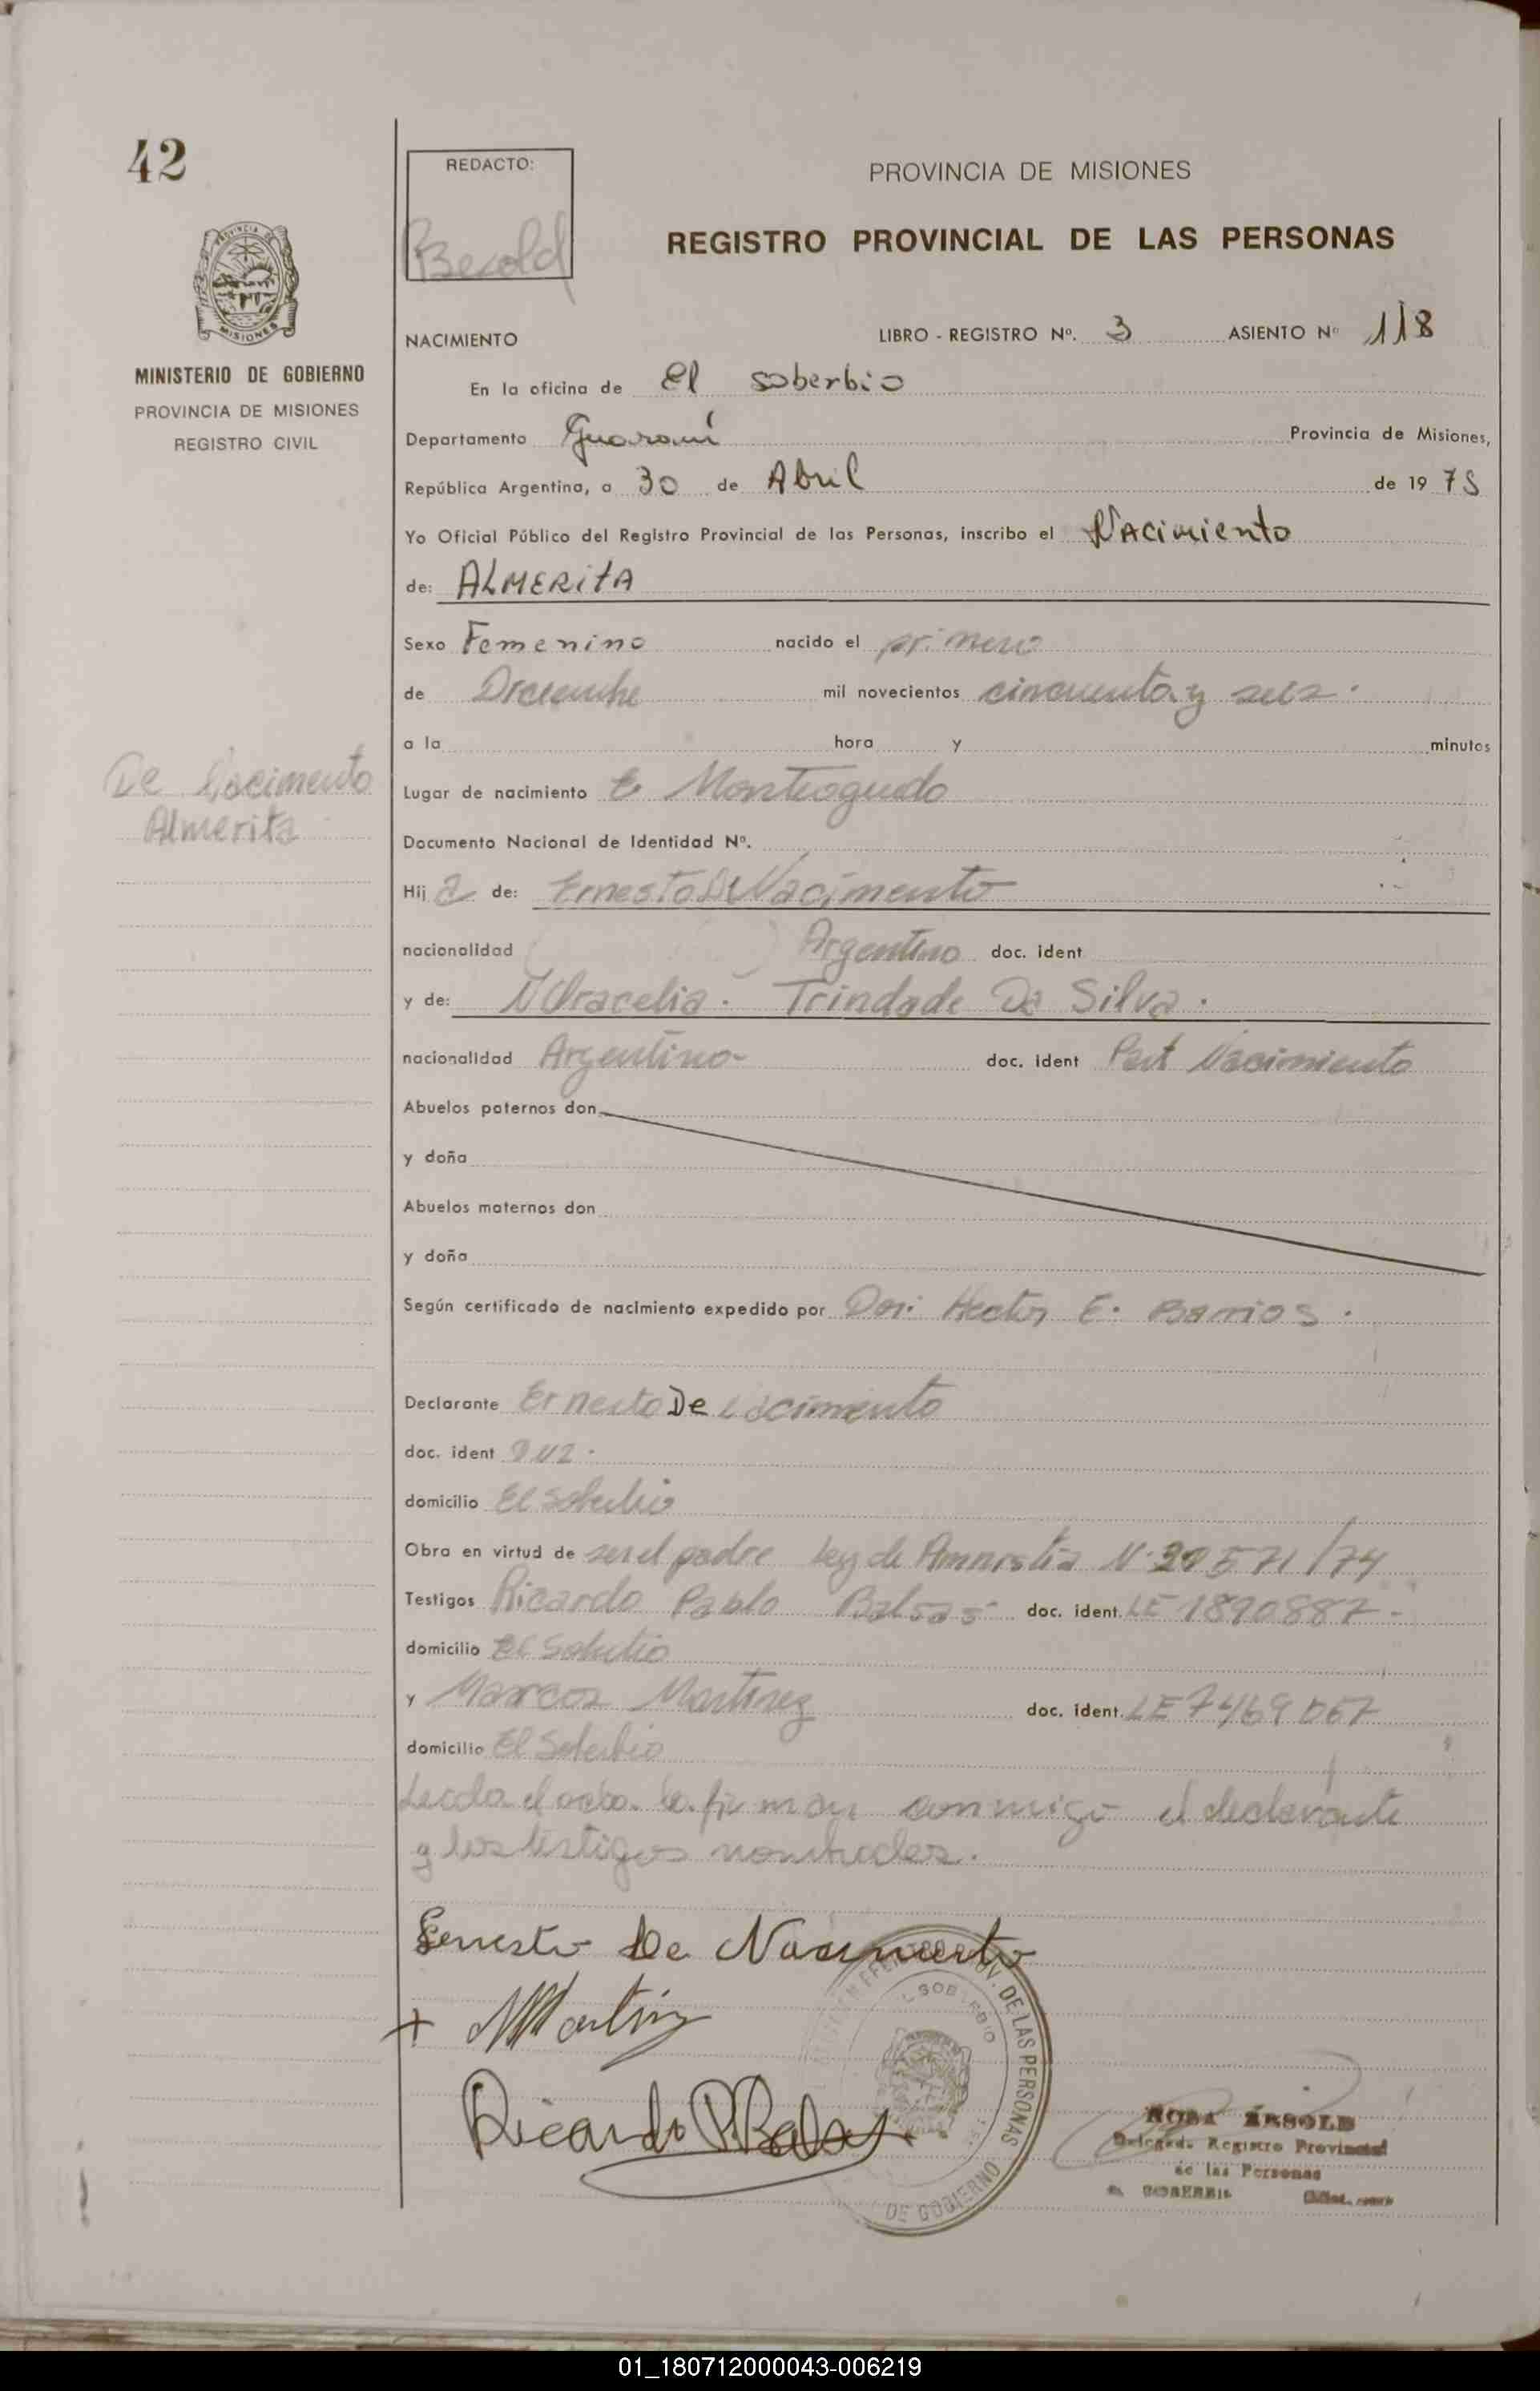 42
REDACTO:
PROVINCIA DE MISIONES
REGISTRO PROVINCIAL DE LAS PERSONAS
MINISTERIO DE GOBIERNO
PROVINCIA DE MISIONES
REGISTRO CIVIL
NACIMIENTO LIBRO - REGISTRO Nº. 3 ASIENTO Nº 118
En la oficina de El soberbio
Departamento Guaraní Provincia de Misiones,
República Argentina, a 30 de Abril de 19 75
Yo Oficial Público del Registro Provincial de las Personas, inscribo el Nacimiento
de: ALMERITA
Sexo Femenino nacido el primero
de mil novecientos cincuenta y seis.
a la hora y minutos
De Nacimento
Almerita
Lugar de nacimiento Monteagudo
Documento Nacional de Identidad Nº.
Hij a de: Ernesto De Nacimento
nacionalidad Argentino doc. ident
y de: Trindade Da Silva.
nacionalidad Argentina doc. ident Part Nacimiento
Abuelos paternos don
y doña
Abuelos maternos don
y doña
Según certificado de nacimiento expedido por Hector E. Barrios.
Declarante Ernesto De Nacimento
doc. ident
domicilio El Soberbio
Obra en virtud de ser el padre Ley de Amnistia N. 20571/74
Testigos Ricardo Pablo Balsas doc. ident. LE 1890887-
domicilio El Soberbio
y Marcos Martinez doc. ident. LE 7469067
domicilio El Soberbio
Leida el acta la firman conmigo el declarante
y los testigos nombrados.
Ernesto De Nacimento
+ MMartinez
Ricardo P. Balsas
SOBERBIO
PROV. DE LAS PERSONAS
DE GOBIERNO
Registro Provincial
de las Personas
01_180712000043-006219